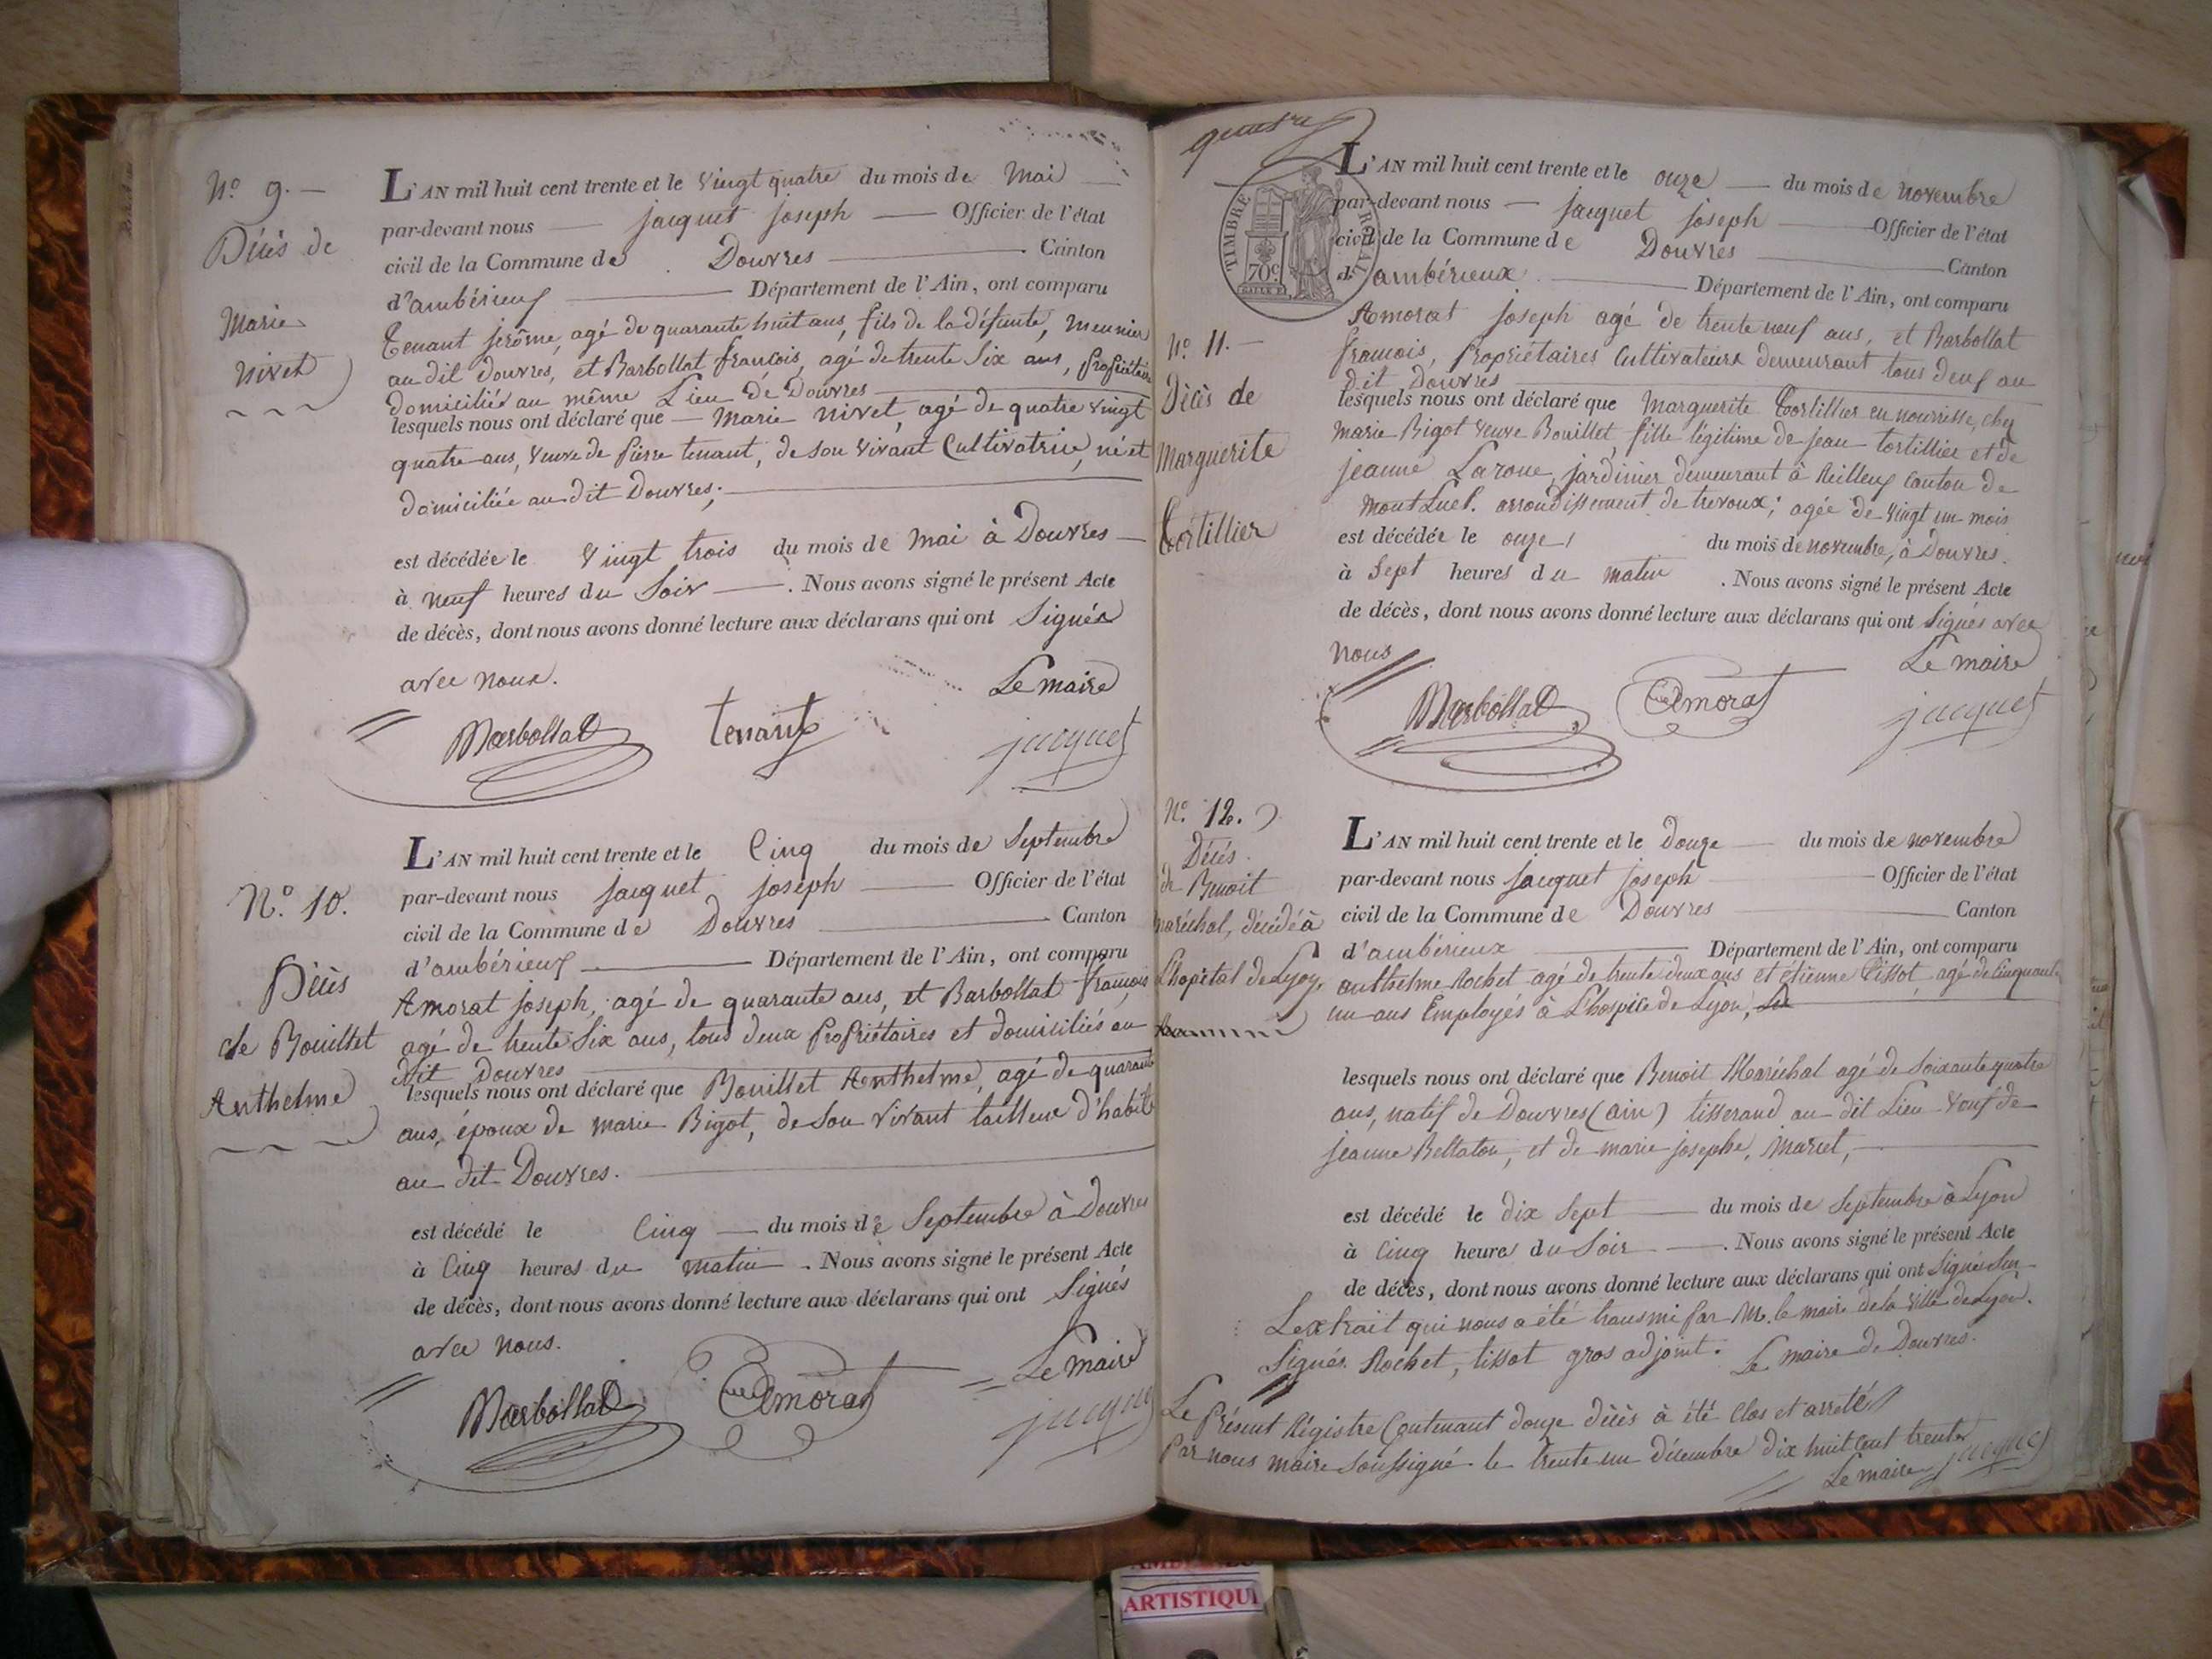 N.º 9. —
Décès de
Marie
Nivet
L'AN mil huit cent trente et le vingt quatre du mois de Mai
par-devant nous — jacquet joseph — Officier de l'état
civil de la Commune de Douvres — Canton
d'ambérieux — Département de l'Ain, ont comparu
Tenant jérôme, agé de quarante huit ans, fils de la défunte, meunier
au dit Douvres, et Barbollat françois, agé de trente six ans, propriétaire
domiciliés au même Lieu de Douvres —
lesquels nous ont déclaré que — Marie Nivet, agé de quatre vingt
quatre ans, veuve de pierre tenant, de son vivant Cultivatrice, né et
domiciliée au dit Douvres; —
est décédée le vingt trois du mois de mai à Douvres —
à neuf heures du Soir — . Nous avons signé le présent Acte
de décès, dont nous avons donné lecture aux déclarans qui ont Signés
avec nous.
Le maire
Barbollat tenant jacquet
N.º 10.
Décès
de Bouillet
Anthelme
L'AN mil huit cent trente et le Cinq du mois de Septembre
par-devant nous jacquet joseph — Officier de l'état
civil de la Commune de Douvres — Canton
d'ambérieux — Département de l'Ain, ont comparu
Amorat joseph, agé de quarante ans, et Barbollat françois
agé de trente six ans, tous deux propriétaires et domiciliés au
dit Douvres —
lesquels nous ont déclaré que Bouillet Anthelme, agé de quarante
ans, époux de marie Bigot, de son vivant tailleur d'habit
au dit Douvres. —
est décédé le Cinq — du mois de Septembre à Douvres
à Cinq heures du matin . Nous avons signé le présent Acte
de décès, dont nous avons donné lecture aux déclarans qui ont Signés
avec nous.
Le Maire
Barbollat Amorat jacquet
TIMBRE ROYAL
70c
N.º 11. —
Décès de
Marguerite
Tortillier
L'AN mil huit cent trente et le onze — du mois de novembre
par-devant nous — jacquet joseph — Officier de l'état
civil de la Commune de Douvres — Canton
d'ambérieux — Département de l'Ain, ont comparu
Amorat joseph agé de trente neuf ans, et Barbollat
françois, propriétaires Cultivateurs demeurant tous deux au
dit Douvres —
lesquels nous ont déclaré que Marguerite Tortillier en nourrisse, chez
marie Bigot veuve Bouillet, fille légitime de jean tortillier et de
jeanne Laroue, jardinier demeurant à Reilleux canton de
MontLuel. arrondissement de trevoux; agée de vingt un mois
est décédée le onze du mois de novembre, à Douvres.
à Sept heures du matin . Nous avons signé le présent Acte
de décès, dont nous avons donné lecture aux déclarans qui ont Signés avec
nous
Le maire
Barbollat Amorat jacquet
N.º 12.
Décès
de Benoit
maréchal, décédé à
L'hopital de Lyon
L'AN mil huit cent trente et le Douze — du mois de novembre
par-devant nous jacquet joseph — Officier de l'état
civil de la Commune de Douvres — Canton
d'ambérieux — Département de l'Ain, ont comparu
anthelme Rochet agé de trente deux ans et étienne tissot agé de Cinquante
un ans Employés à L'hospice de Lyon,
lesquels nous ont déclaré que Benoit Maréchal agé de soixante quatre
ans, natif de Douvres (ain) tisserand au dit Lieu veuf de
jeanne Bellaton, et de marie josephe, Marcel, —
est décédé le dix Sept — du mois de Septembre à Lyon
à Cinq heures du Soir — . Nous avons signé le présent Acte
de décès, dont nous avons donné lecture aux déclarans qui ont Signés Sur
L'extrait qui nous a été transmi par M. le maire de la ville de Lyon.
Signés Rochet, tissot gros adjoint. Le maire de Douvres.
Le présent Régistre Contenant douze décès à été Clos et arreté
Par nous maire Soussigné le trente un décembre dix huit Cent trente
Le maire jacquet
ARTISTIQU